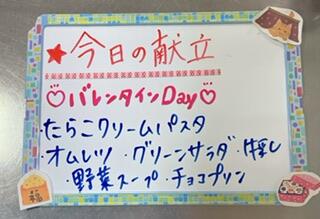 ★今日の献立
♡バレンタインDay♡
・たらこクリームパスタ
・オムレツ ・グリーンサラダ ・牛乳
・野菜スープ・チョコプリン